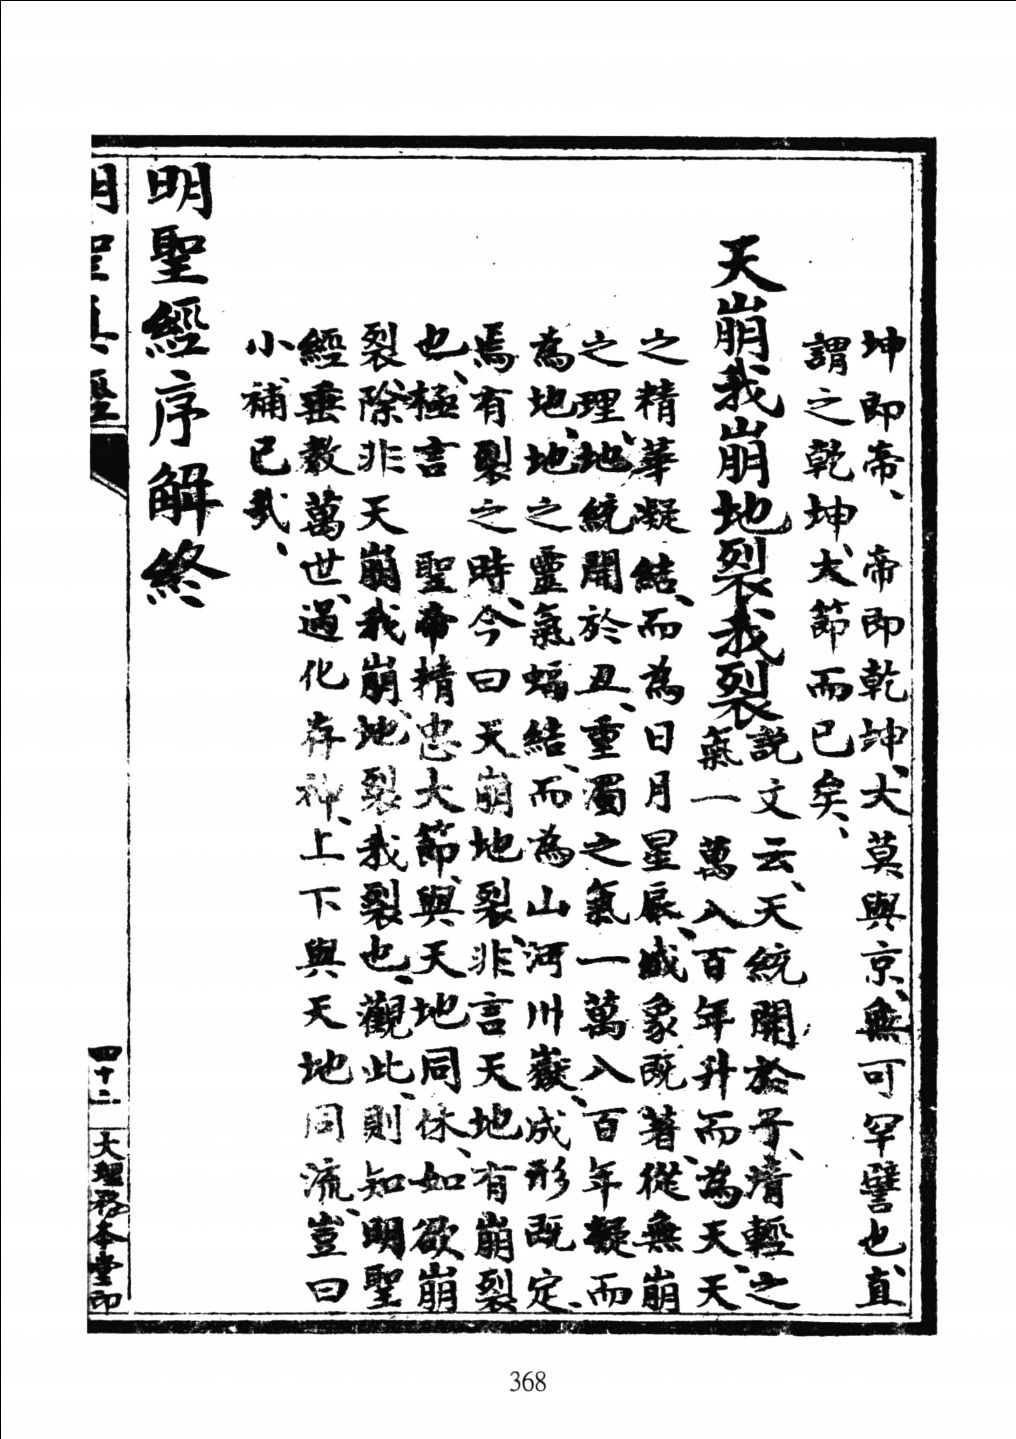 坤即帝、　帝即乾坤、大莫與京、無可罕譬也、直
謂之乾坤大節而已矣、
天崩我崩地裂我裂
説文云、天統開於子、清輕之
氣一萬八百年升而為天、天
之精華凝結、而為日月星辰、盛象既著、從無崩
之理、地統開於丑、重濁之氣一萬八百年凝而
為地、地之靈氣蟠結、而為山河川嶽、成形既定、
焉有裂之時、今曰天崩地裂、非言天地有崩裂
也、極言　聖帝精忠大節、與天地同休、如欲崩
裂、除非天崩我崩、地裂我裂也、觀此、則知明聖
經垂教萬世、過化存神、上下與天地同流、豈曰
小補已哉、
明聖經序解終
明聖真經
四十二
大理務本堂印
368